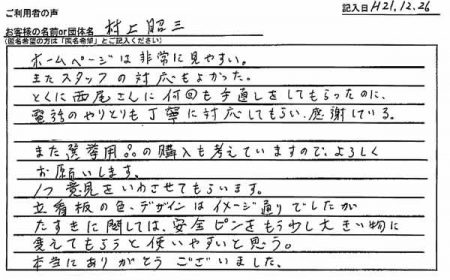 ご利用者の声
記入日 H21.12.26
お客様の名前or団体名 村上昭三
(匿名希望の方は「匿名希望」とご記入ください)
ホームページは非常に見やすい。
またスタッフの対応もよかった。
とくに西尾さんに何回も手直しをしてもらったのに、
電話のやりとりも丁寧に対応してもらい、感謝している。
また選挙用品の購入も考えていますので、よろしく
お願いします。
1つ意見をいわさせてもらいます。
立看板の色、デザインはイメージ通りでしたが
たすきに関しては、安全ピンをもう少し大きい物に
変えてもらうと使いやすいと思う。
本当にありがとうございました。